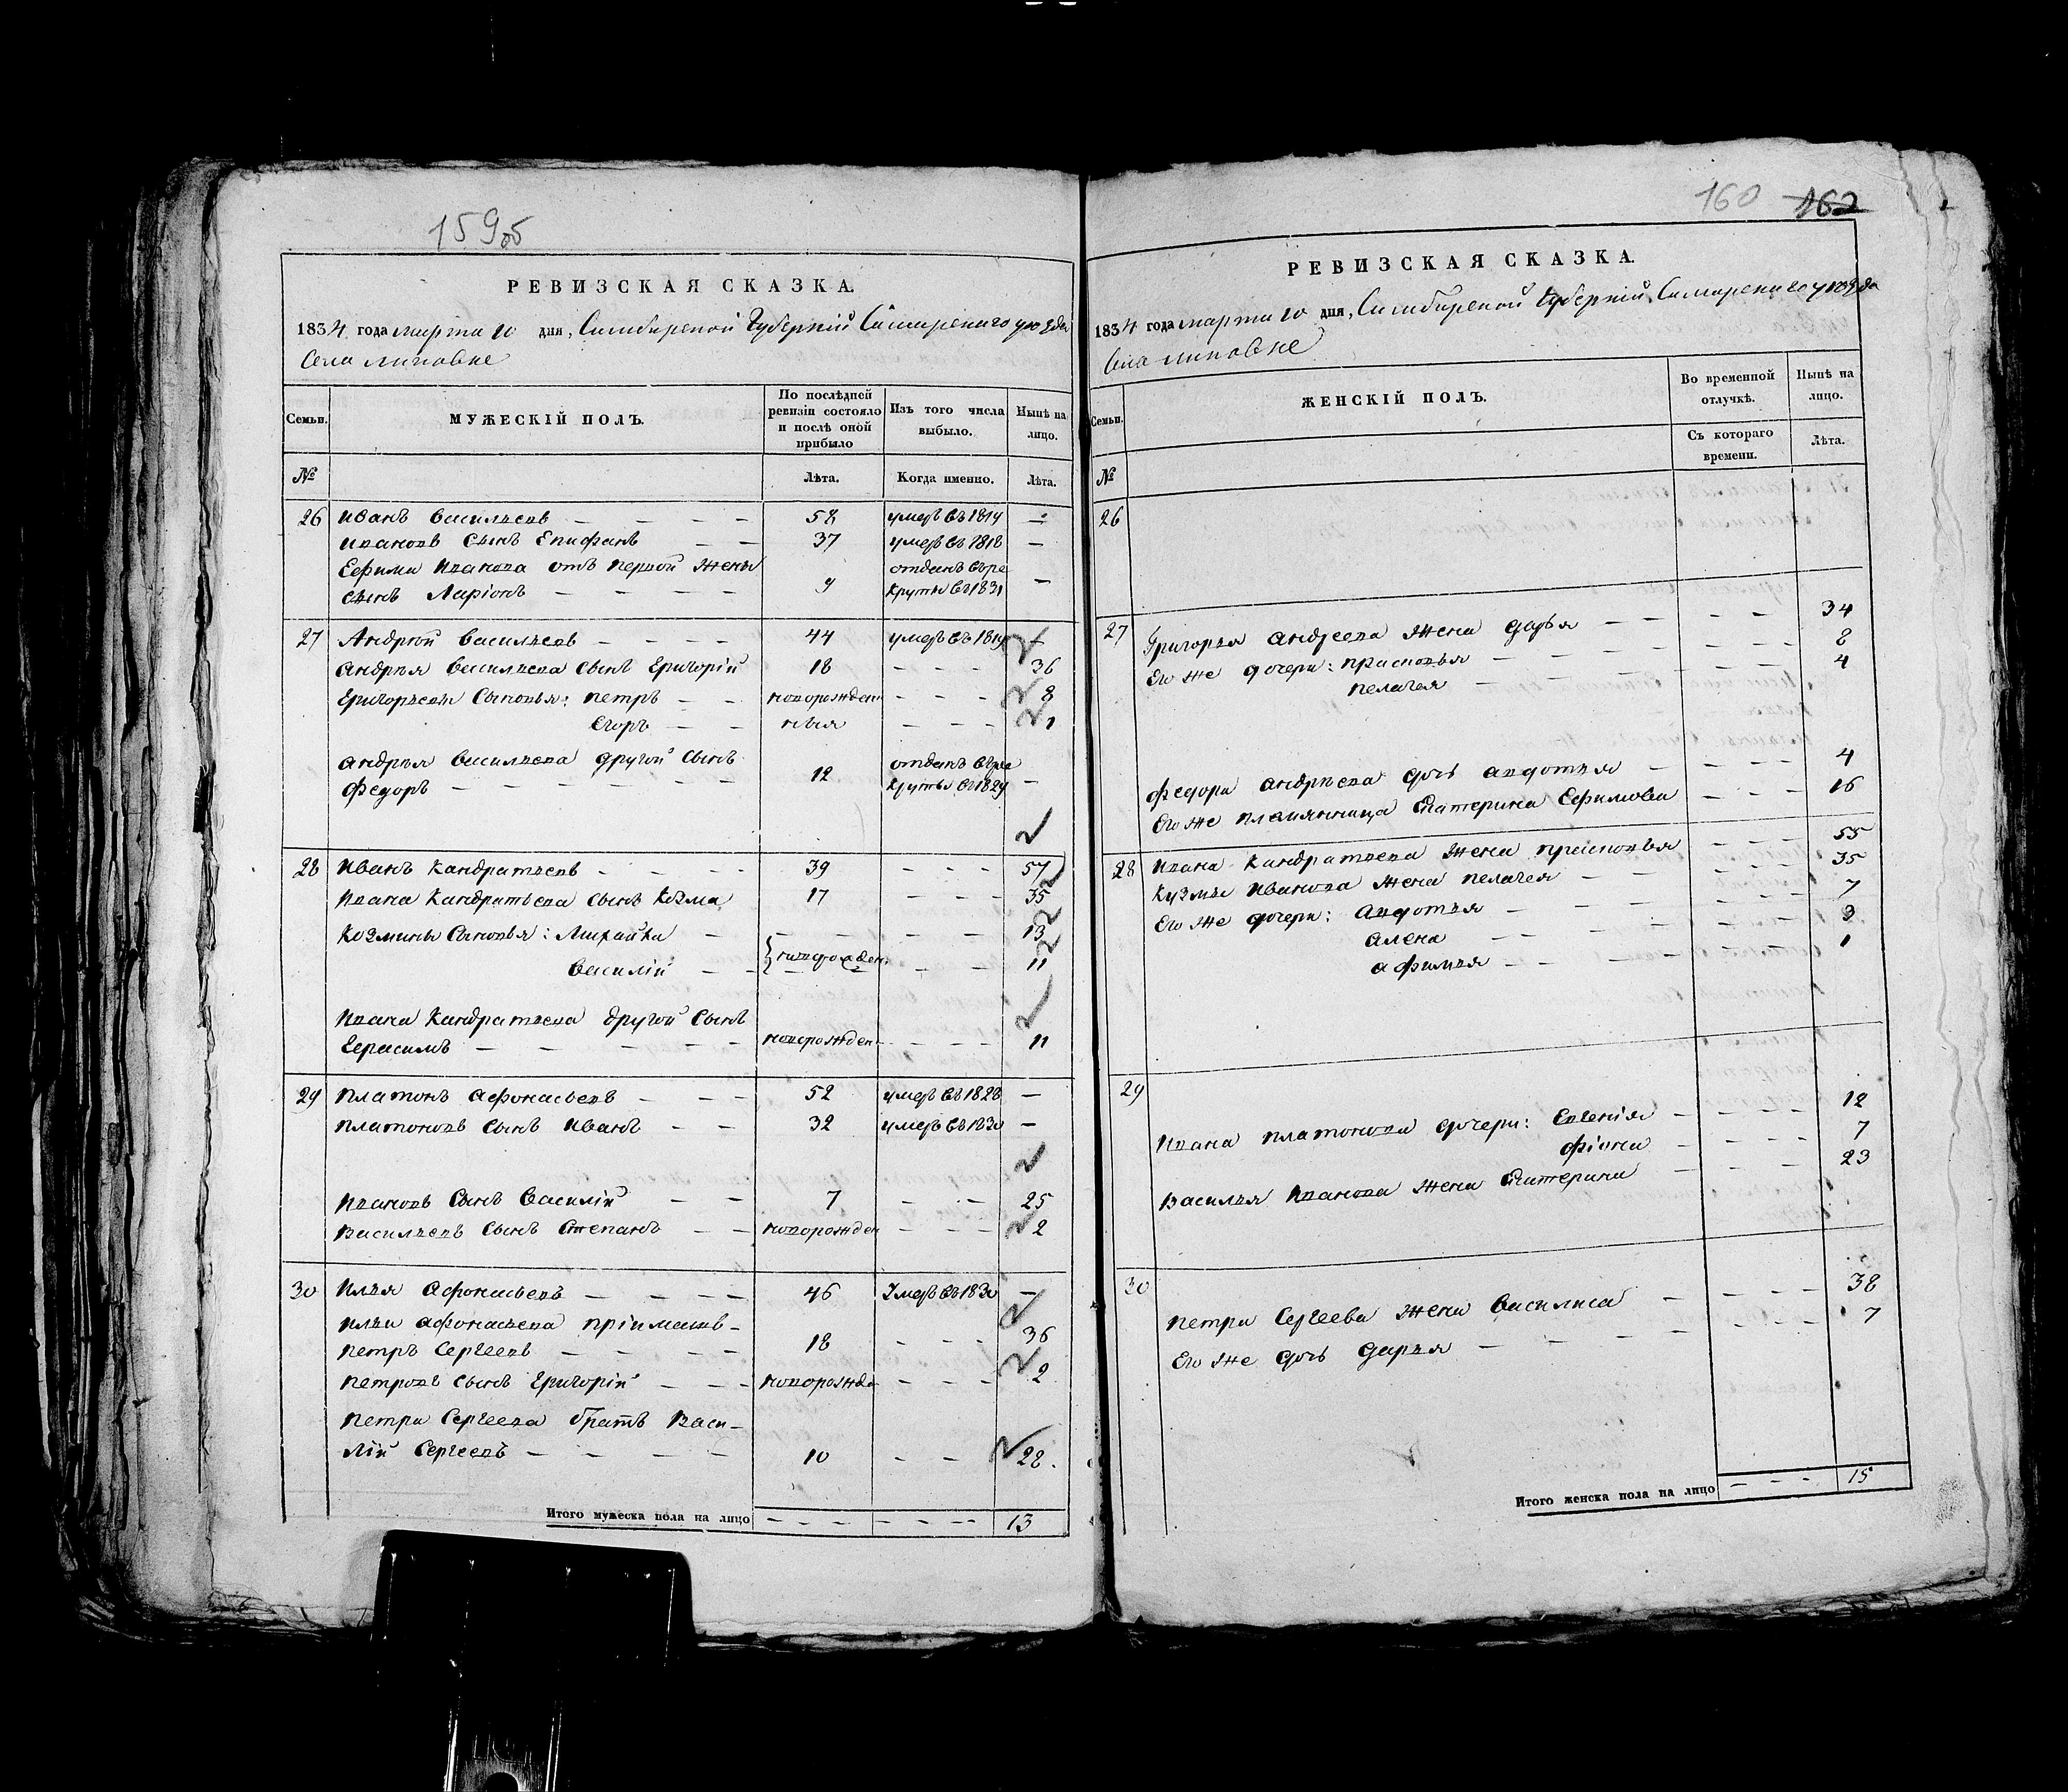 159об
РЕВИЗСКАЯ СКАЗКА.
1834 года марта 20 дня, Симбирской Губернiй Самарскаго уѣзда
Села липовке
Семьи.
МУЖЕСКІЙ ПОЛЪ.
По послѣдней ревизіи состояло и послѣ оной прибыло
Изъ того числа выбыло.
Нынѣ на лицо.
№
Лѣта.
Когда именно.
Лѣта.
26 Иванъ Васильевъ — — — — 58 умеръ въ 1819 —
Ивановъ Сынъ Епифанъ — — 37 умеръ въ 1818 —
Ефима Иванова отъ первой жены отданъ въ ре
сынъ Ларіонъ — — — — 9 круты въ 1831 —
27 Андрѣй Васильевъ — — — — 44 умеръ въ 1819 —
Андрѣя Васильева Сынъ Григорій 18 — — — 36
Григорьевы Сыновья: петръ — — новорожден — — — 8
Егоръ — — ныя — — — 1
Андрѣя Васильева другой Сынъ отданъ въ ре
Федоръ — — — — — — 12 круты въ 1829 —
28 Иванъ Кандратьевъ — — — — 39 — — — 57
Ивана Кандратьева сынъ Козма 17 — — — 35
Козмины Сыновья: Михайла — — — — — 13
Василій — — новорожден — — 11
Ивана Кандратьева другой Сынъ
Герасимъ — — — — — новорожден — — — 11
29 Платонъ Афонасьевъ — — — 52 умеръ въ 1828 —
Платоновъ Сынъ Иванъ — — 32 умеръ въ 1830 —
Ивановъ Сынъ Василій — — 7 — — — 25
Васильевъ Сынъ Степанъ — — новорожден — — — 2
30 Илья Афонасьевъ — — — — 46 Умеръ въ 1830 —
Ильи Афонасьева пріимышъ —
Петръ Сергеевъ — — — — 18 — — — 36
Петровъ сынъ Григорій — — — новорожде — — — 2
Петра Сергеева братъ Васи—
лій Сергеевъ — — — — 10 — — 28.
Итого мужеска пола на лицо — — — — — — — 13
160 162
РЕВИЗСКАЯ СКАЗКА.
1834 года марта 20 дня, Симбирской Губерніи, Самарскаго уѣзда
Села липовке
Семьи.
ЖЕНСКІЙ ПОЛЪ.
Во временной отлучкѣ.
Нынѣ на лицо.
Съ котораго времени.
Лѣта.
№
26
27 Григорья андреева жена дарья — — — — 34
Его же дочери: прасковья — — — — 8
пелагея — — — — 4
Федора андрѣева дочь авдотья — — — — 4
Его же племянница Екатерина Ефимова — — — 16
28 Ивана Кандратьева жена прасковья — — — 55
Кузмы Иванова жена пелагея — — — — 35
Его же дочери: Авдотья — — — — 7
Алена — — — — 3
афимья — — — — 1
29
Ивана платонова дочери: Евгенія — — — — 12
Фіона — — — — 7
Василья Иванова жена Екатерина — — — 23
30
Петра Сергеева жена Василиса — — — — 38
Его же дочь дарья — — — — 7
Итого женска пола на лицо — — — 15